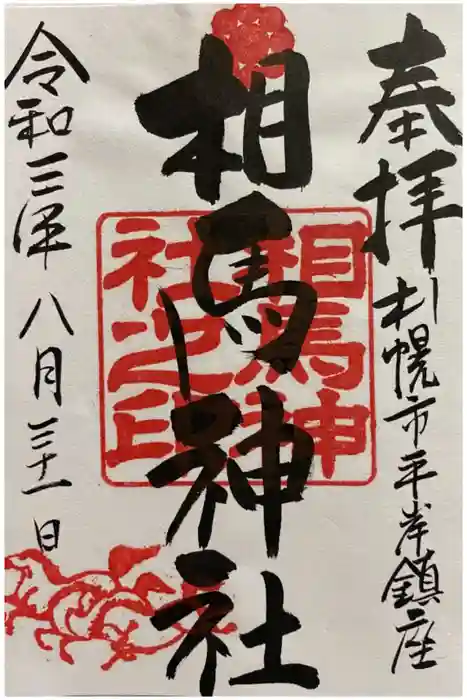 奉拝
札幌市平岸鎮座
相馬神社
相馬神
社之印
令和三年八月三十一日